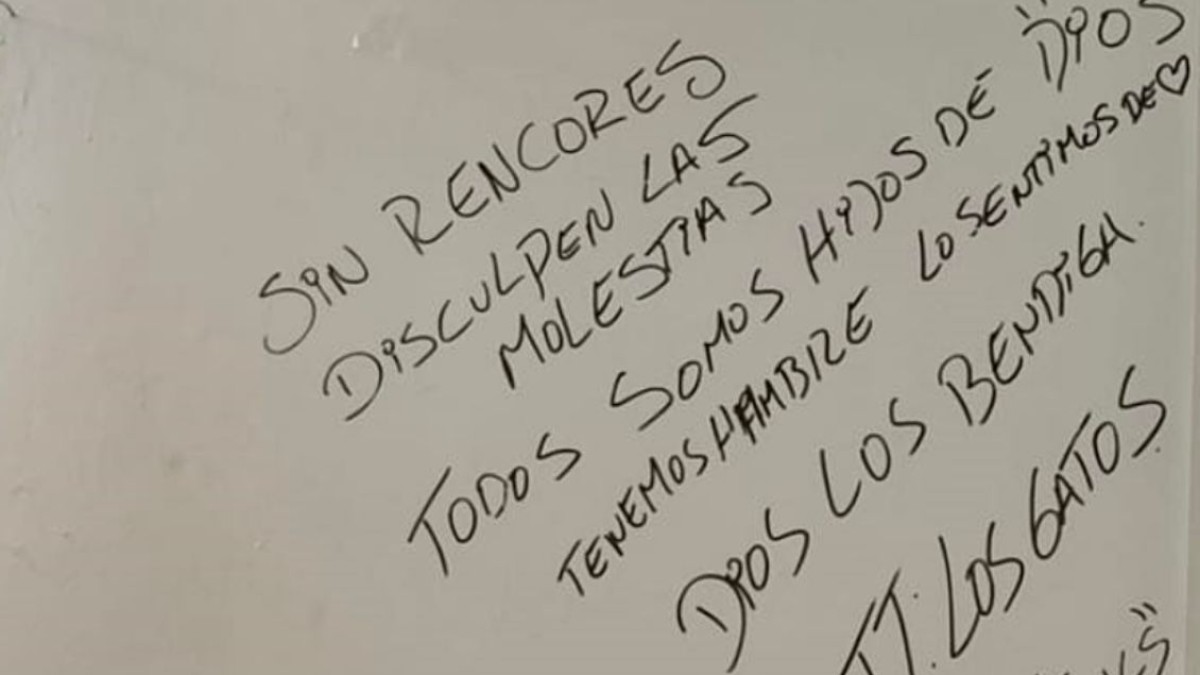 SIN RENCORES
DISCULPEN LAS
MOLESTIAS
TODOS SOMOS HIJOS DE DIOS
TENEMOS HAMBRE LO SENTIMOS DE ♡
DIOS LOS BENDIGA.
LOS GATOS.